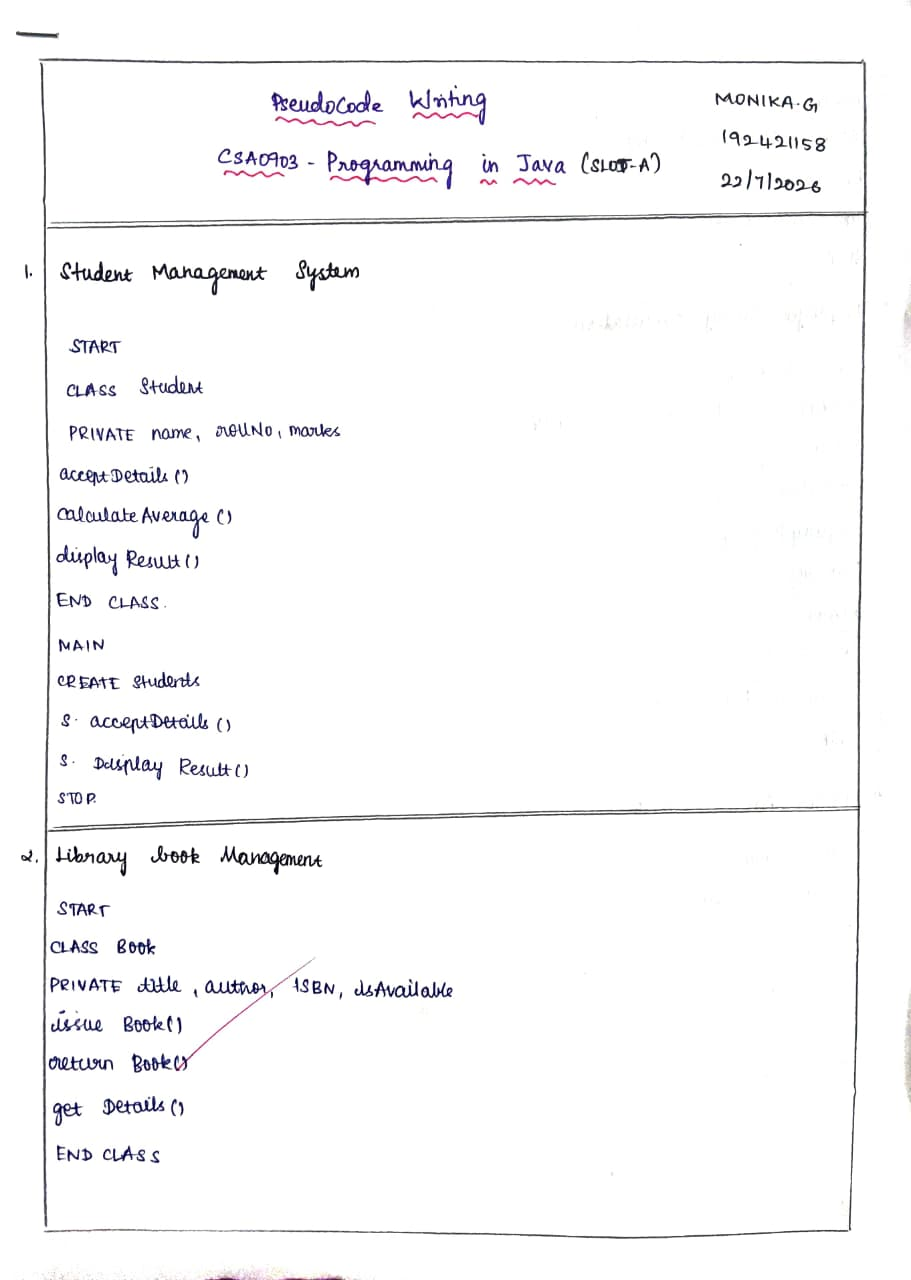 PseudoCode Writing
CSA0903 - Programming in Java (SLOT-A)
MONIKA.G
192421158
22/7/2026
1. Student Management System
START
CLASS Student
PRIVATE name, rollNo, marks
acceptDetails ()
calculateAverage ()
display Result ()
END CLASS.
MAIN
CREATE Students
S. acceptDetails ()
S. Display Result ()
STOP.
2. Library book Management
START
CLASS Book
PRIVATE title, author, ISBN, isAvailable
issue Book()
return Book()
get Details ()
END CLASS